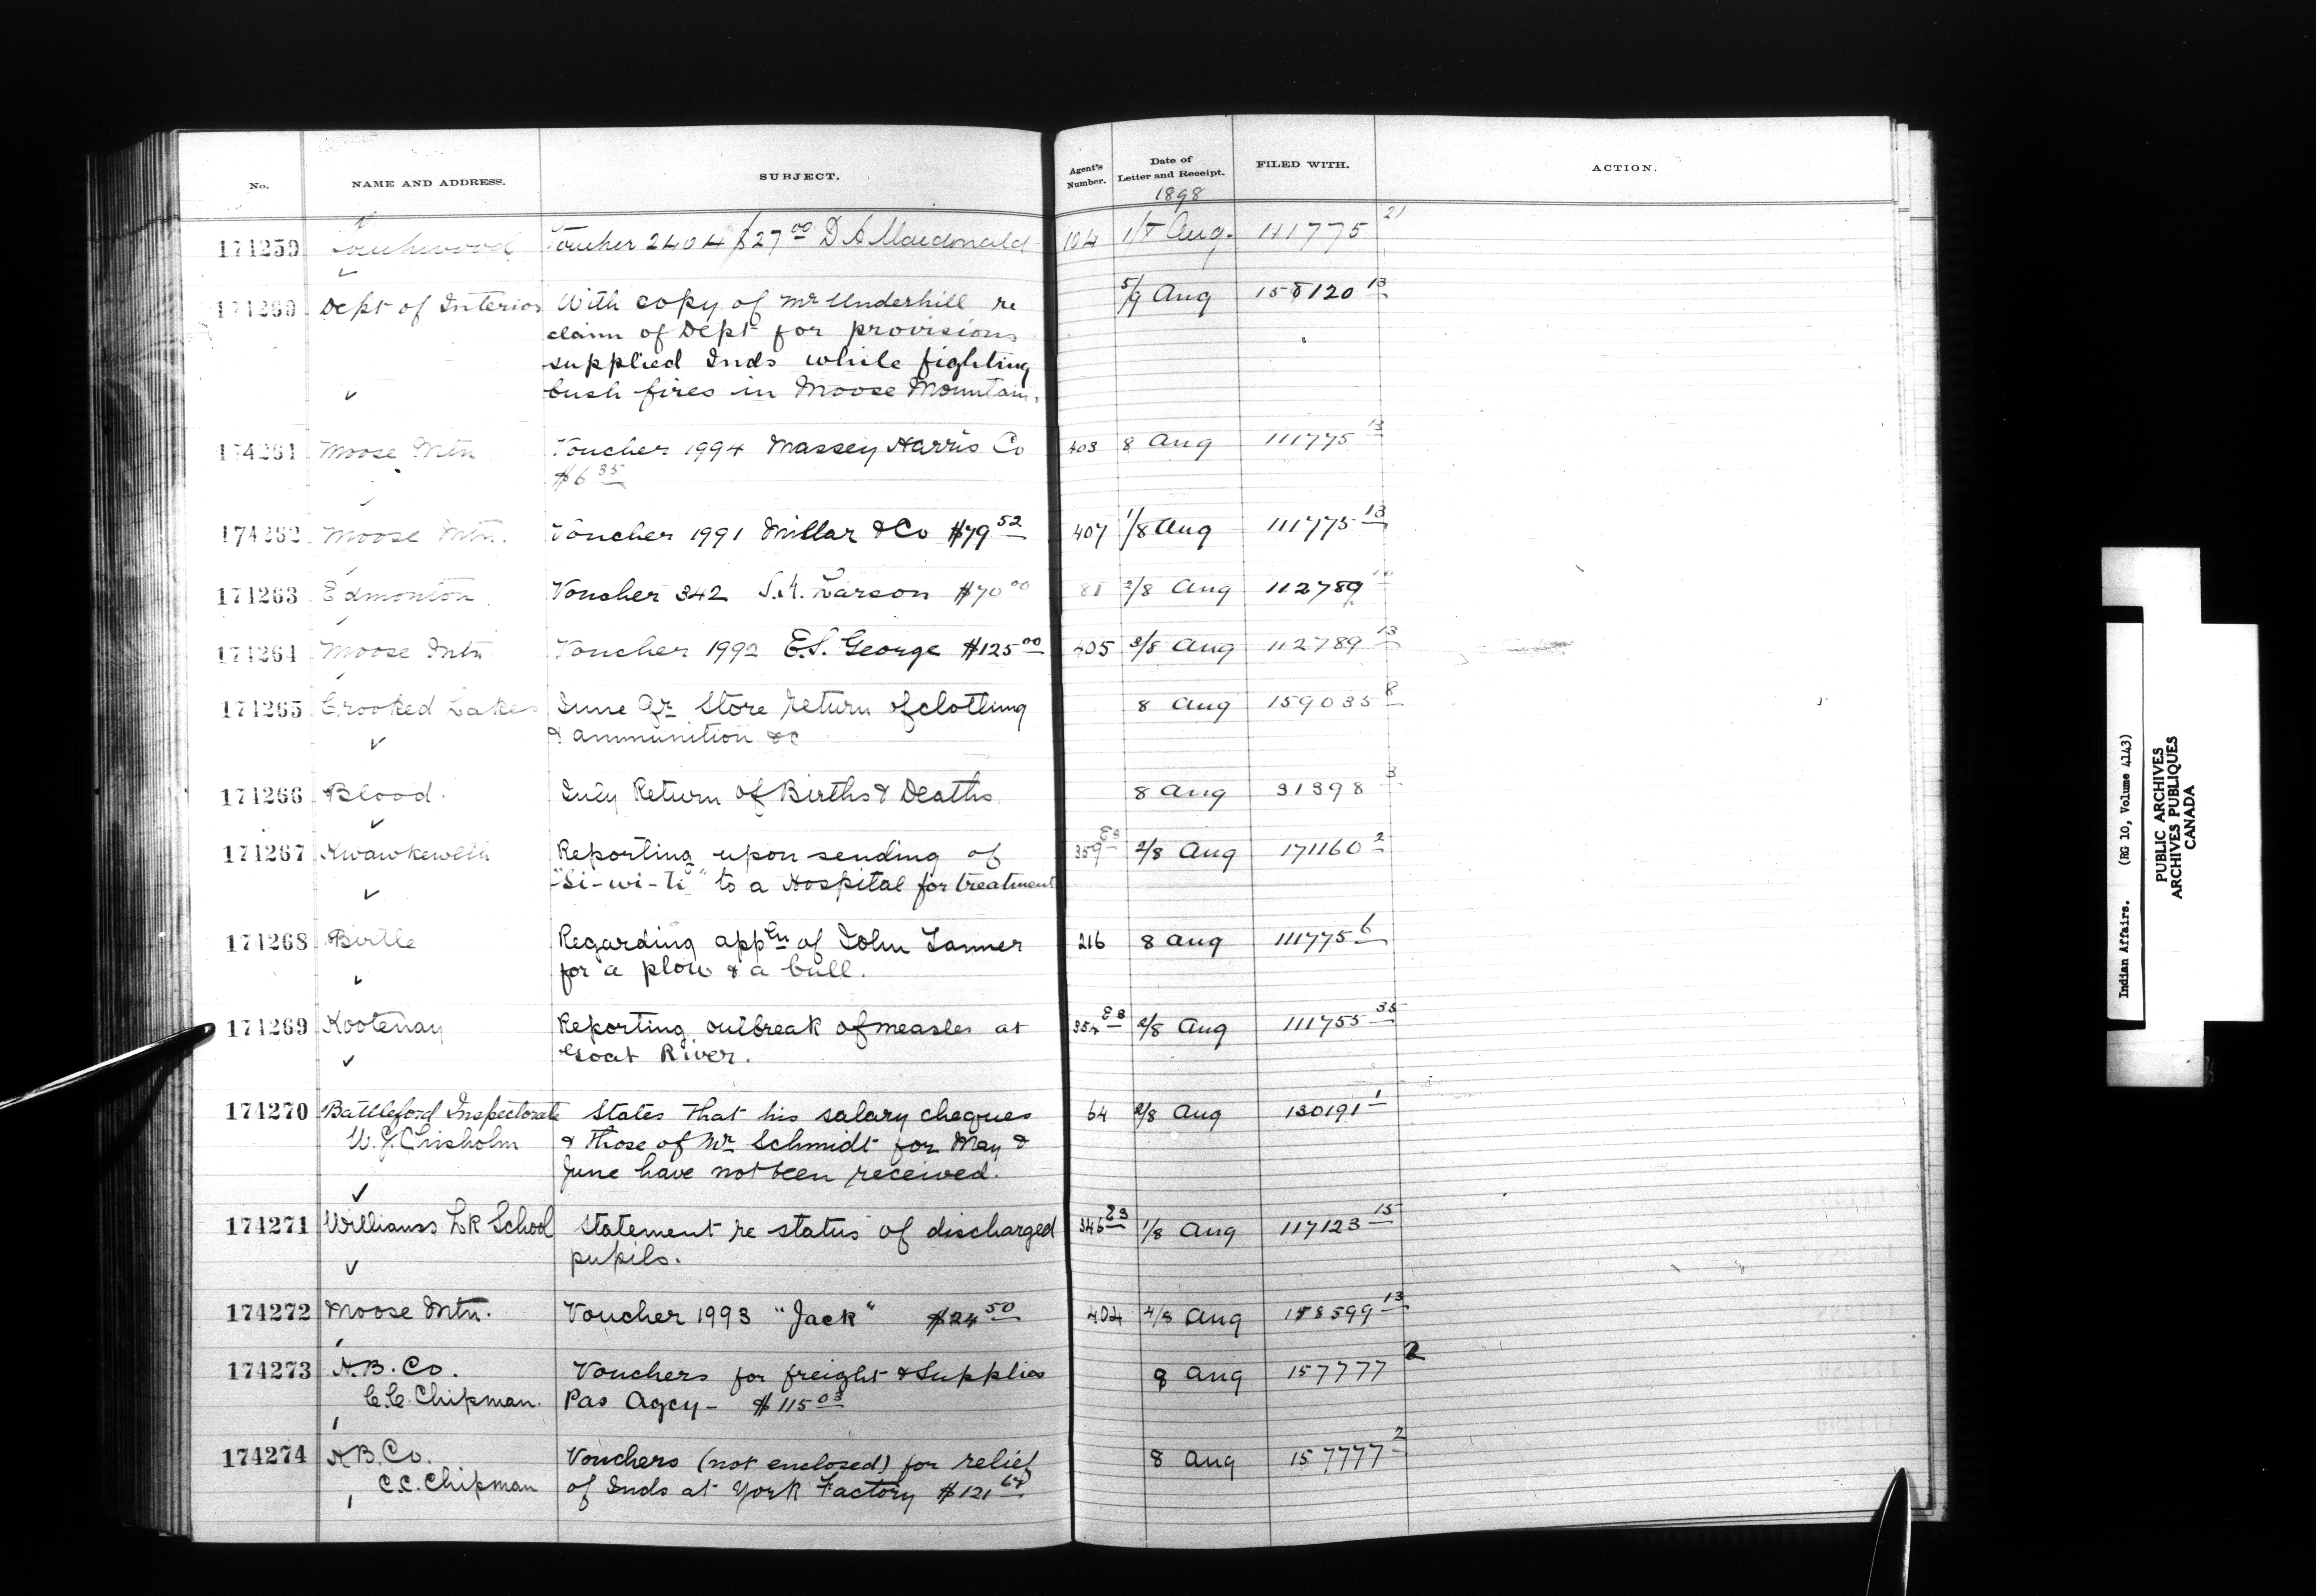 No. NAME AND ADDRESS. SUBJECT. Agent's Number. Date of Letter and Receipt. FILED WITH. ACTION.
1898
174259 Touchwood Voucher 2404 $27 00 D A Macdonald 104 1/8 Aug. 111775 21
174260 Dept of Interior With copy of Mr Underhill re 5/9 Aug 158120 13
claim of Dept for provisions
supplied Inds while fighting
bush fires in Moose Mountain.
174261 Moose Mtn Voucher 1994 Massey Harris Co 403 8 Aug 111775 13
$6 35
174262 Moose Mtn. Voucher 1991 Millar & Co $79 52 407 1/8 Aug 111775 13
174263 Edmonton Voucher 342 Larson $70 00 81 2/8 Aug 112789
174264 Moose Mtn Voucher 1992 E.S. George $125 00 405 3/8 Aug 112789 13
174265 Crooked Lakes June Qr Store return of clothing 8 Aug 159035 8
& ammunition &c
174266 Blood. July Return of Births & Deaths 8 Aug 31398 3
174267 Kwawkewlth Reporting upon sending of 359 E3 2/8 Aug 171160 2
"Si-wi-ti" to a Hospital for treatment
174268 Birtle Regarding appln of John Tanner 216 8 Aug 111775 6
for a plow & a bull.
174269 Kootenay Reporting outbreak of measles at 354 E3 2/8 Aug 111755 35
Goat River.
174270 Battleford Inspectorate States that his salary cheques 64 2/8 Aug 130191 1
W.J. Chisholm & those of Mr Schmidt for May &
June have not been received.
174271 Williams Lk School Statement re status of discharged 346 E3 1/8 Aug 117123 15
pupils.
174272 Moose Mtn. Voucher 1993 "Jack" $24 50 404 4/8 Aug 158599 13
174273 H.B. Co. Vouchers for freight & Supplies 8 Aug 157777 2
C.C. Chipman. Pas Agcy - $115 03
174274 H.B. Co. Vouchers (not enclosed) for relief 8 Aug 157777 2
C.C. Chipman of Inds at York Factory $121 64
Indian Affairs. (RG 10, Volume 4143)
PUBLIC ARCHIVES
ARCHIVES PUBLIQUES
CANADA